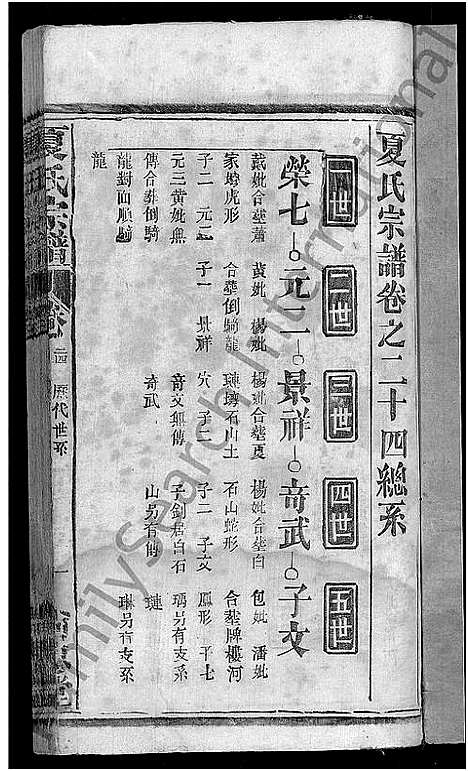 夏氏宗譜卷之二十四總系
一世 二世 三世 四世 五世
榮七 元一 景祥 奇武 子文
戴妣合塟蕭
家塝虎形
子二 元二
元三黄妣無
傳合塟倒騎
龍對面順騎
龍
黄妣 楊妣
合塟倒騎龍
子一 景祥
楊妣合塟夏
璉塆石山土
穴 子二
奇文無傳
奇武
楊妣合塟白
石山蛇形
子二 子文
子釗居白石
山另有傳
包妣 潘妣
合塟牌樓河
鳳形 子七
瑀另有支系
璉
琳另有支系
夏氏宗譜
卷
二四 歷代世系
一
FamilySearch International